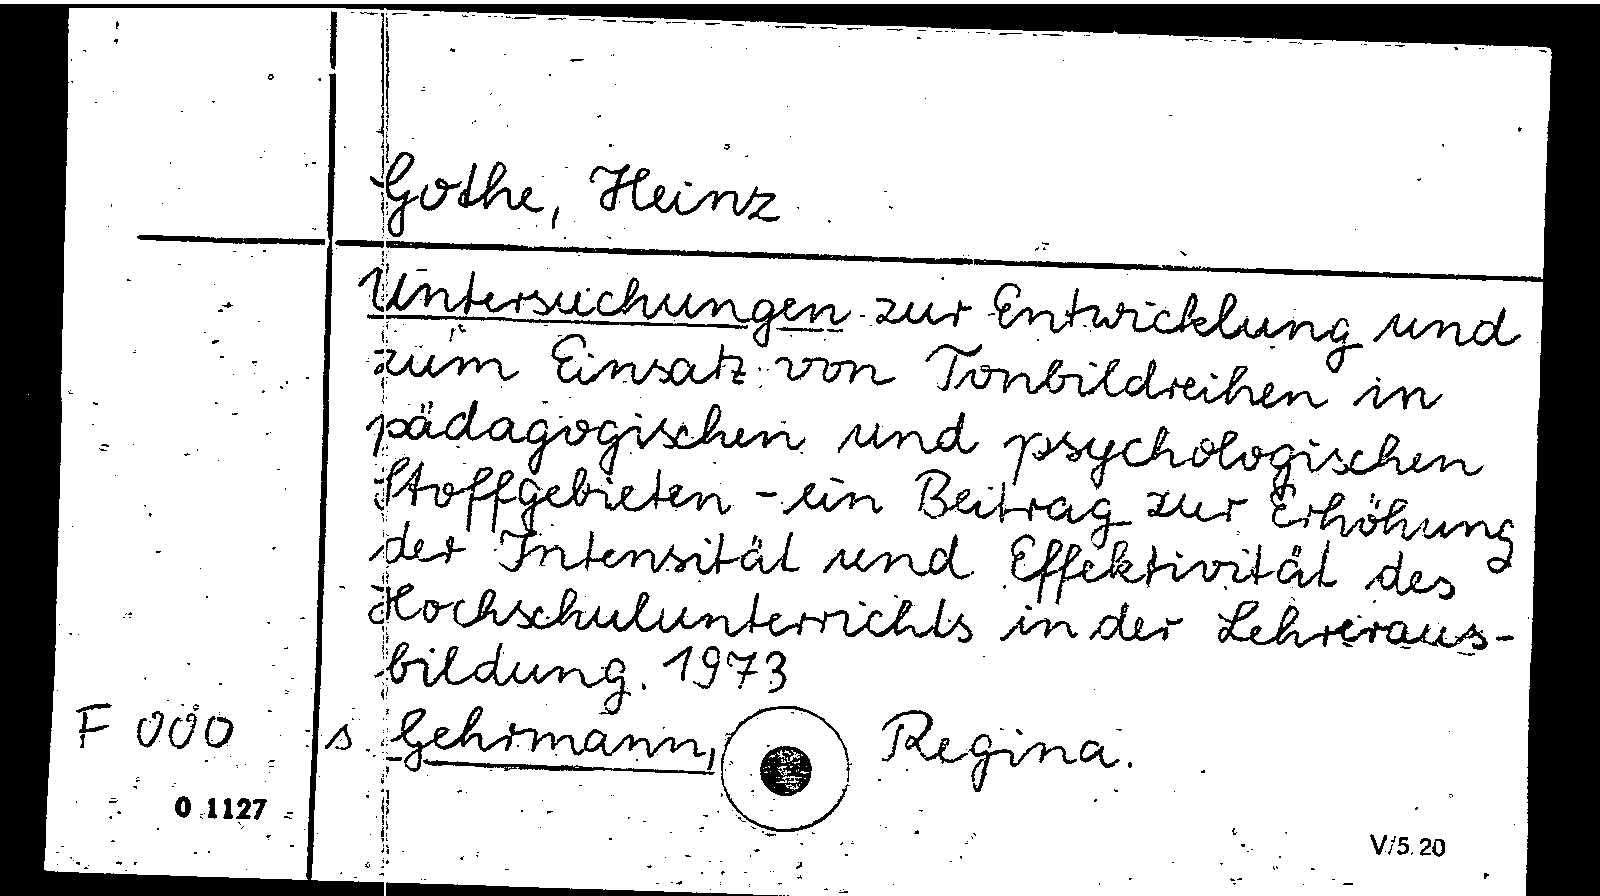 Gothe, Heinz
Untersuchungen zur Entwicklung und
zum Einsatz von Tonbildreihen in
pädagogischen und psychologischen
Stoffgebieten - ein Beitrag zur Erhöhung
der Intensität und Effektivität des
Hochschulunterrichts in der Lehreraus-
bildung. 1973
F 000 s Gehrmann, Regina.
0 1127
V/5 20